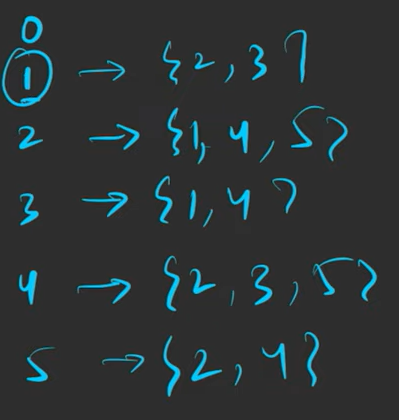 0
1 → {2, 3}
2 → {1, 4, 5}
3 → {1, 4}
4 → {2, 3, 5}
5 → {2, 4}